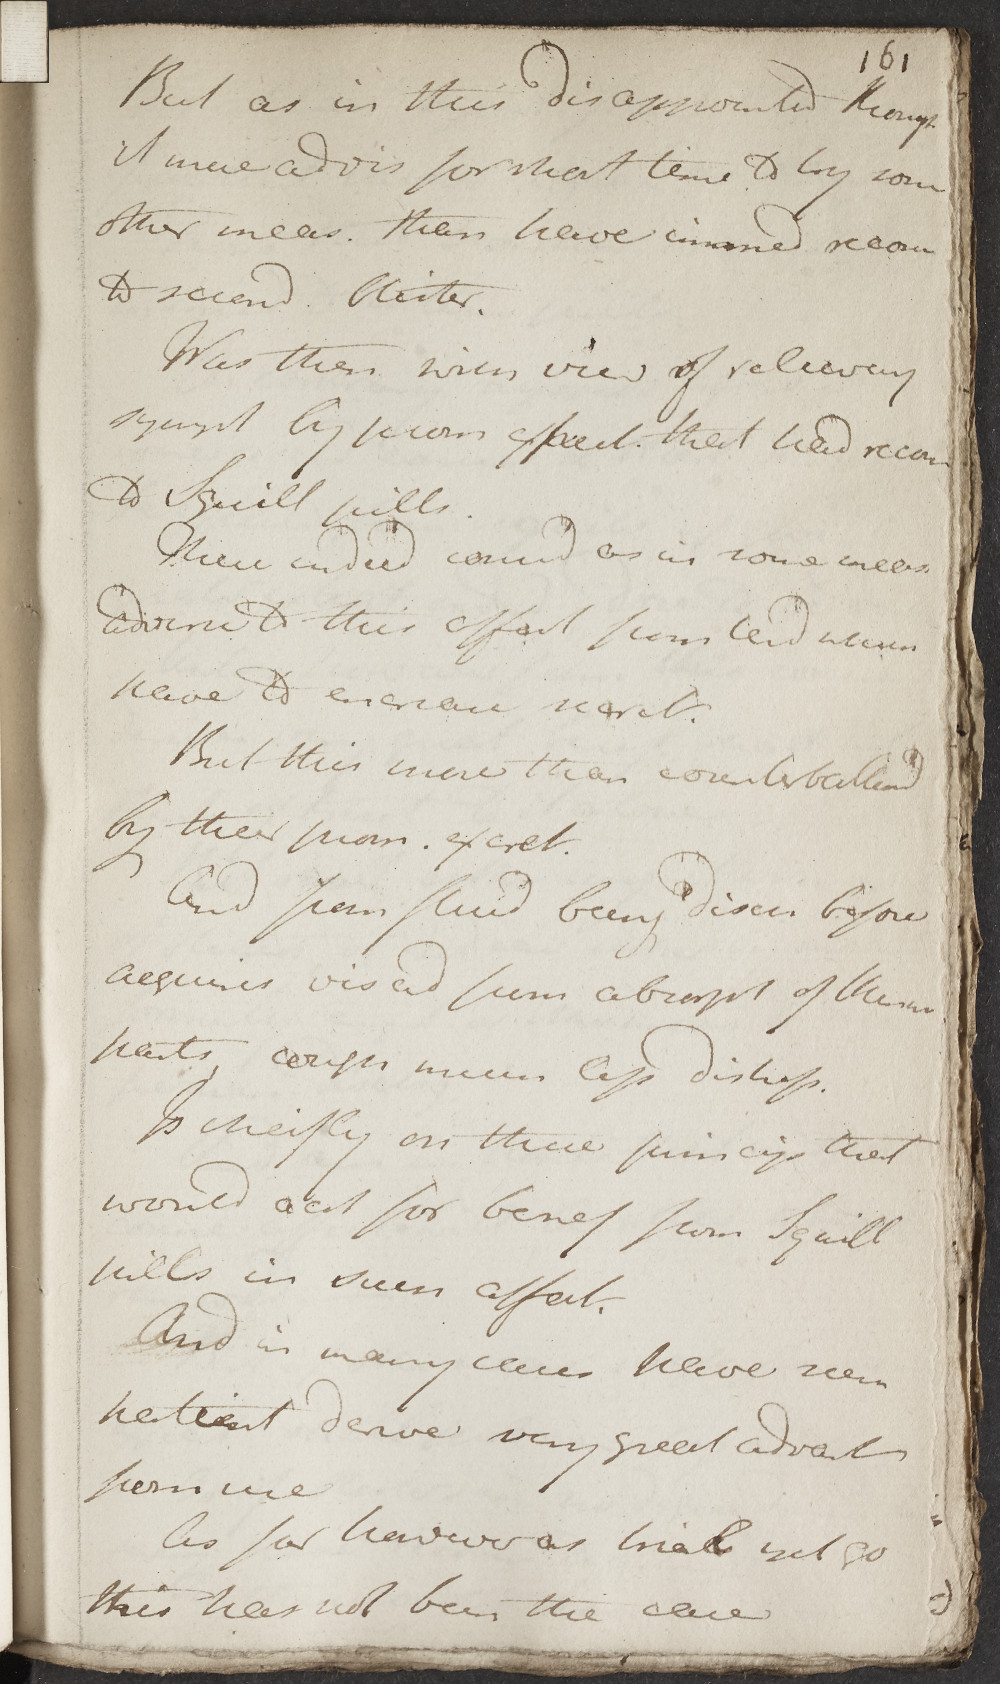 161
But as in this disappointed though
it more advis for short time to try som
other meas. than have immed recou
to second Blister.
Was then with view of relieving
sympt by prom expect. that had recou
to Squill pills.
These indeed cons'd as in some meas
adverse to this effect from tend which
have to increase secret.
But this more than counterballanc'd
by their prom. excret.
And from fluid being discu before
acquires viscid from absorpt of thinner
parts, cough much less distress.
Is chiefly on these princips that
would acct for benef from Squill
pills in such affect.
And in many cases have seen
patient derive very great advant
from use
As far however as trial yet go
this has not been the case